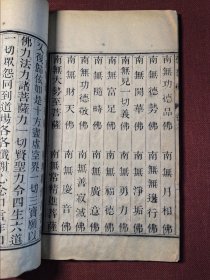 南無功德品佛 南無月相佛
南無得勢佛 南無無邊行佛
南無開華佛 南無淨垢佛
南無見一切義佛 南無勇力佛
南無富足佛 南無福德佛
南無功德敬佛 南無廣意佛
南無善寂滅佛 南無慶音佛
南無大勢至菩薩 南無常精進菩薩
又復歸依如是十方盡虛空界一切三寶願以
佛力法力諸菩薩力一切賢聖力令四生六道
一切眾怨同到道場各各懺謝